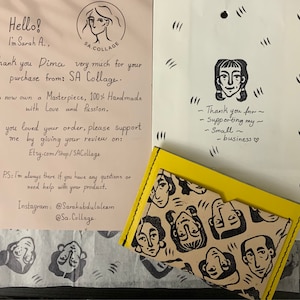 Hello!
I'm Sarah A.,
SA.COLLAGE
Thank you Dima very much for your
purchase from: SA Collage.
now own a Masterpiece, 100% Handmade
with Love and Passion.
you loved your order, please support
me by giving your review on:
Etsy.com/shop/SACollage
P.S: I'm always here if you have any questions or
need help with your product.
Instagram: @Sarahabdulaleam
@Sa.Collage
~ Thank you for ~
~ supporting my ~
~ small ~
~ business ♡